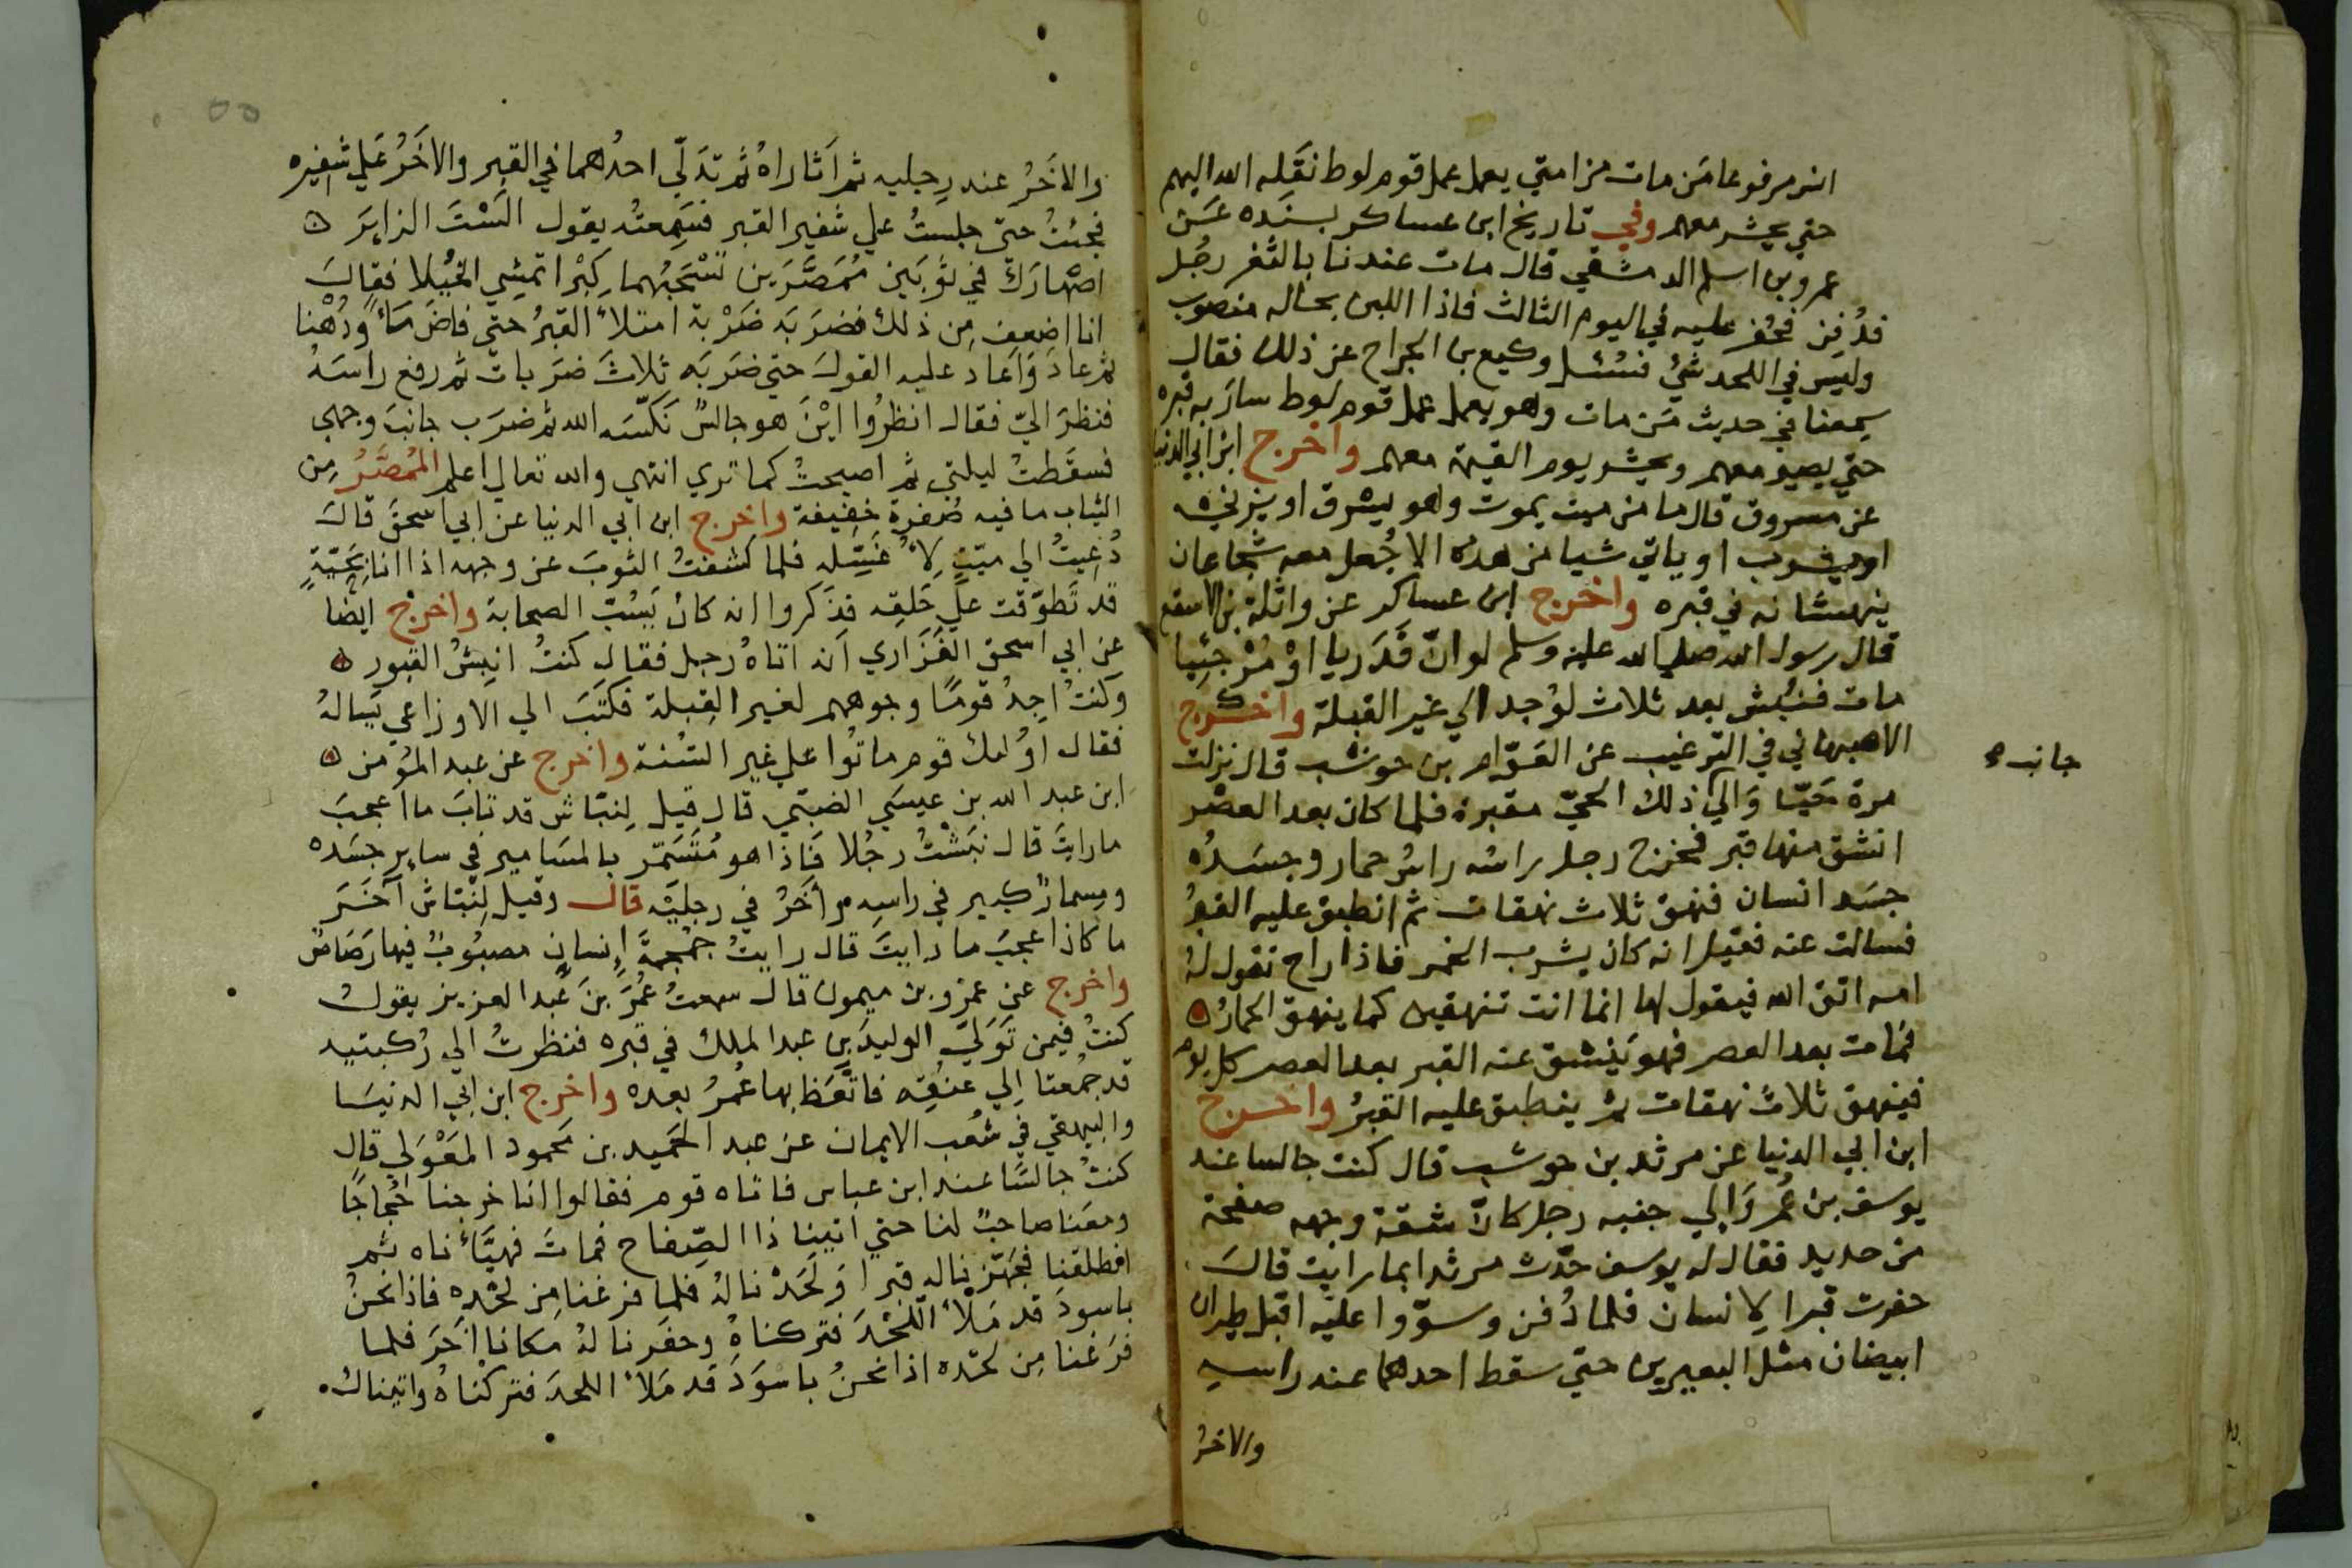 انس مرفوعا مَن مات من امتي يعمل عمل قوم لوط نقَله الله اليهم
حتي يحشر معهم وفي تاريخ ابن عساكر بسنَده عَن
عمرو بن اسلم الدمشقي قال مات عندنا بالثغر رجُل
فدُفِن فحُفر عليه في اليوم الثالث فاذا اللبن بحاله منصوب
وليس في اللحد شيُ فسُئل وكيع بن الجراح عن ذلك فقال
سمعنا في حديث مَن مات وهو يعمل عمل قوم لوط سارَ به قبره
حتي يصير معهم ويحشر يوم القيمة معهم واخرج ابن ابي الدنيا
عن مسروق قال ما من ميت يموت وهو يسرق او يزني
او يشرب او ياتي شيا من هذه الا جُعل معه شجاعان
ينهشانه في قبره واخرج ابن عساكر عن واثلة بن الاسقع
قال رسول الله صلي الله عليه وسلم لو انّ قَدَريا اوْ مُرْجئِيا
مات فنُبش بعد ثلاث لوُجد الي غير القبلة واخرج
الاصبهاني في الترغيب عن العَوّام بن حوشب قال نزلت
جانب
مرة حَيّا وَالي ذلك الحيّ مقبرة فلما كان بعد العصْر
انشق منها قبر فخرج رجل راسُه راسُ حمار وجسَدُه
جسَد انسان فنهق ثلاث نهقات ثم انطبق عليه القبرُ
فسالت عنه فقيل انه كان يشرب الخمر فاذا راح تقول لهُ
امه اتق الله فيقول لها انما انت تنهقين كما ينهق الحمارُ
فمات بعد العصر فهو يَنشق عنه القبر بعد العصر كل يوم
فينهق ثلاث نهقات ثم ينطبق عليه القبرُ واخرج
ابن ابي الدنيا عن مرثد بن حوشب قال كنت جالسا عند
يوسف بن عُمر وَالي جنبه رجل كانّ شقة وجهه صفحة
من حديد فقال له يوسف حدّث مرثد ابما رايت قالَ
حفرت قبرا لانسان فلما دُفن وسوّوا عليه اقبل طيران
ابيضان مثل البعيرين حتي سقط احدهما عند راسه
والاخرُ
والاخَرُ عند رِجليه ثم اَثاراهُ ثم تدَلّي احدُهما في القبر والاخَرُ عَلي شفيره
فجئتُ حتي جلستُ علي شفير القبر فسَمِعتُه يقول الَسْتَ الزايرَ
اصْهارَكَ في ثوبَين مُمَصَّرَين تَسْحَبُهما كِبْرا تمشِي الخُيَلا فقالَ
انا اضعف مِن ذلك فضرَبَه ضَرْبة امتلأَ القبرُ حتي فاضَ مَأً ودُهْنا
ثم عادَ وَاَعَاد عليه القولَ حتي ضرَبَه ثلاثَ ضرَبات ثم رفع راسَهُ
فنظرَ اليّ فقال انظرُوا ايْنَ هو جالسٌ نَكّسَه الله ثم ضرَب جانبَ وجهي
فسقَطتُ ليلتي ثم اصبحتُ كما تري انتهي والله تعالي اعلم المُمصَّرُ مِن
الثياب ما فيه صُفرة خفيفة واخرج ابن ابي الدنيا عن ابي اسحقَ قالَ
دُعِيتُ الي ميّتٍ لأُغَسِّله فلما كشفتُ الثوبَ عن وجهه اذا انا بحَيّةٍ
قد تَطوّقت علي حَلقِه فذَكروا انه كانُ يَسُبّ الصحابة واخرج ايضًا
عن ابي اسحق الفَزَاري اَنه اتاهُ رجل فقال كنتُ انبِشُ القبور
وكنتُ اجِدُ قومًا وجوههم لغير القِبلة فكتَبَ الي الاوزاعي يَسالهُ
فقال اوُلئك قوم ماتُوا علي غير السُنة واخرج عن عبد المُؤمن
ابن عبد الله بن عيسَي الضبّي قال قيل لِنبّاش قد تابَ ما اعجبَ
ما رايتَ قال نبَشْتُ رجُلا فَاذا هو مُتَسَمّر بالمسَامير في ساير جسَده
ومِسمارٌ كبير في راسِه وأخَرُ في رجليَه قال وقيل لِنبّاش آخَرَ
ما كاذا عجبَ ما رايتَ قال رايتُ جمجمةَ إنسان مصبُوبٌ فيها رَصَاصٌ
واخرج عن عمرو بن ميمون قال سمعتُ عُمَرَ بنَ عَبد العزيز يقولُ
كنتُ فيمن تَوَلّيَ الوليدَ بن عبد الملك في قبره فنظرتُ الي رُكبتيه
قد جُمعتا اِلي عنقِه فاتَّعَظ بها عُمرُ بعده واخرج ابن ابي الدنيَا
والبيهقي في شُعب الايمان عن عبد الحَميد بن مَحمود المَعْوَلي قال
كنتُ جالسًا عند ابن عباس فاتاه قوم فقالوا انا خرجنا حُجاجًا
ومعَنا صاحبٌ لنا حتي اتينا ذا الصِّفاح فماتَ فهيَّأناه ثم
انطلقنا فجَهّزنا له قبرا وَلَحَدْنا لهُ فلما فرغنا مِن لحْدِه فاذا نحنُ
باسودَ قد مَلأَ اللّحْدَ فتركناهُ وحفَرنا لهُ مكانا اَخَرَ فلما
فرَغنا مِن لحْده اذا نحنُ باسوَدَ قد مَلأَ اللحدَ فتركناهُ واتيناك